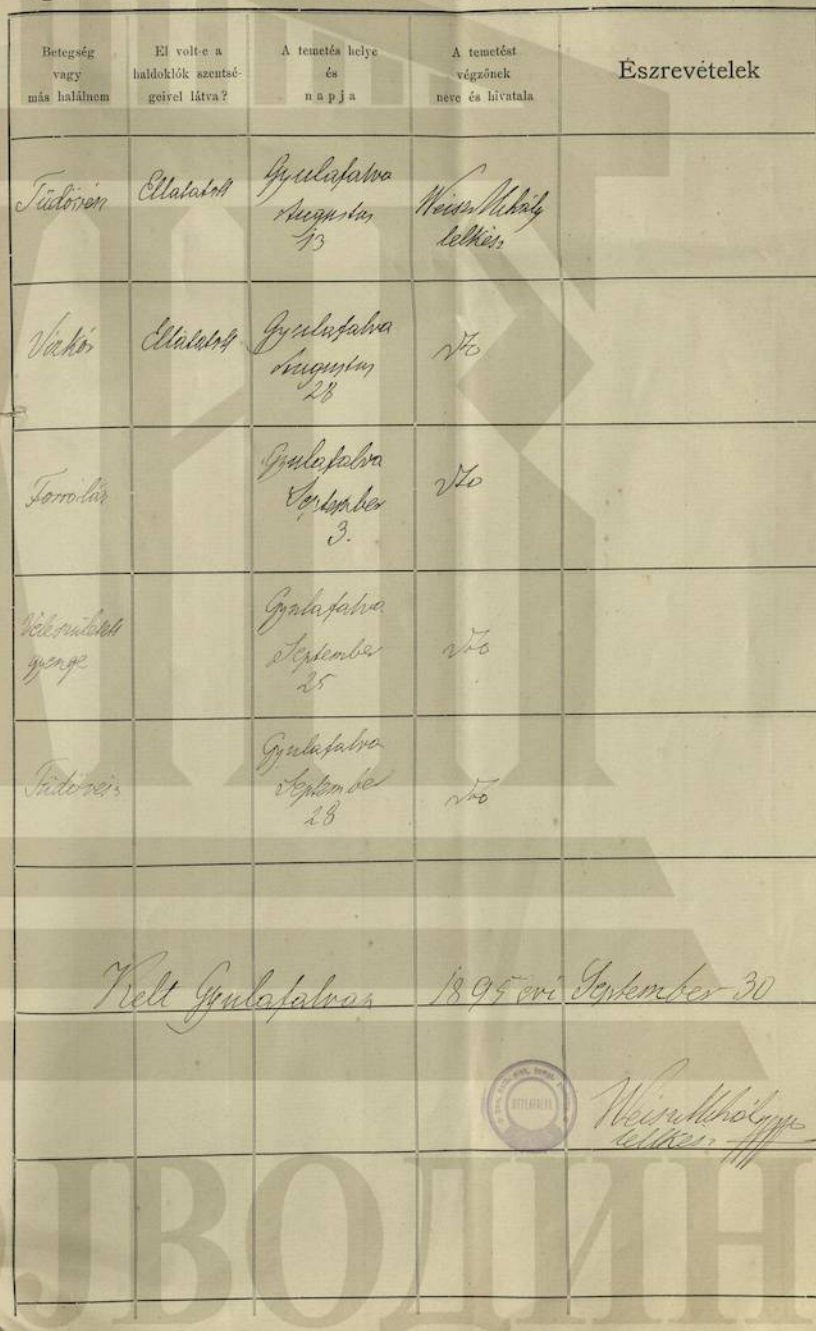 Betegség
vagy
más halálnem
El volt-e a
haldoklók szentsé-
geivel látva?
A temetés helye
és
napja
A temetést
végzőnek
neve és hivatala
Észrevételek
Ellátatott
Gyulafalva
Augustus
13
Weisz Mihály
lelkész
Vizkór
Ellátatott
Gyulafalva
Augustus
28
Gyulafalva
September
3.
Forróláz
Veleszületett
gyenge
Gyulafalva
September
25
Tüdővész
Gyulafalva
September
28
Kelt Gyulafalván 1895 évi September 30
GYULAFALVA
Weisz Mihály
lelkész
ЈВОДИН